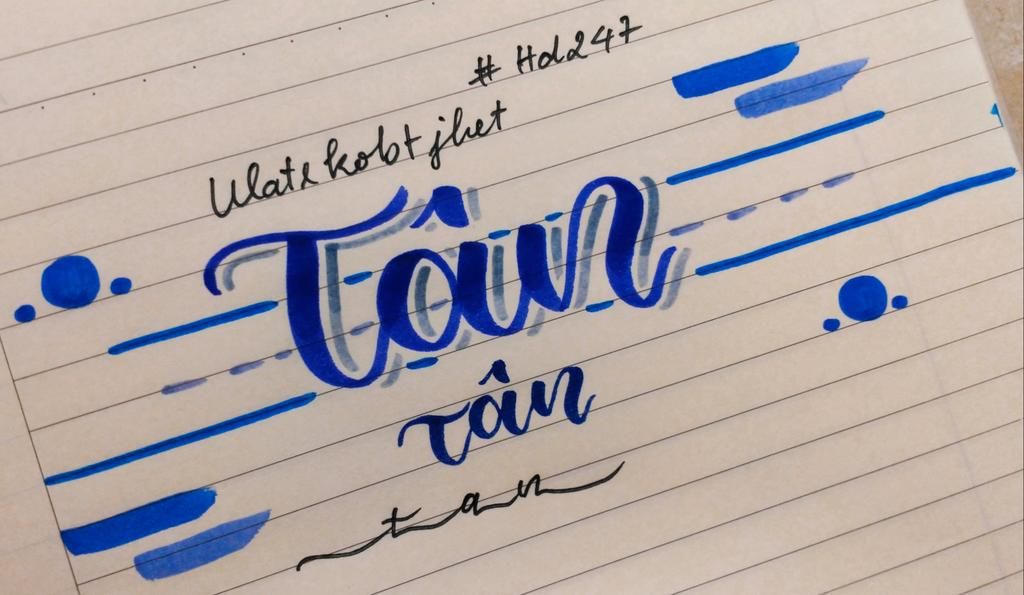 # Hd247
Ulate kobt jhet
Tân
Tân
tan